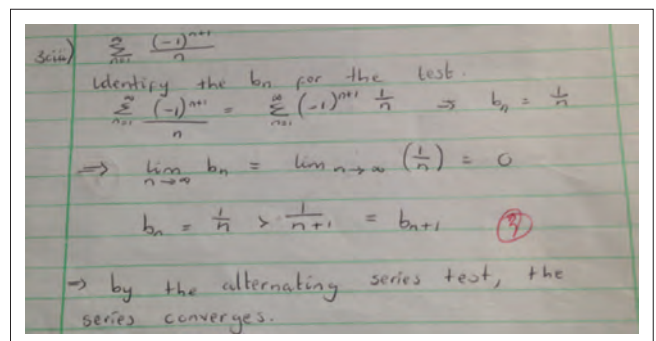 3ciii) ∞∑n=1 (-1)^n+1 / n
Identify the bn for the test.
∞∑n=1 (-1)^n+1 / n = ∞∑n=1 (-1)^n+1 1/n ⇒ bn = 1/n
⇒ lim n→∞ bn = lim n→∞ (1/n) = 0
bn = 1/n > 1/n+1 = bn+1
⇒ by the alternating series test, the
series converges.